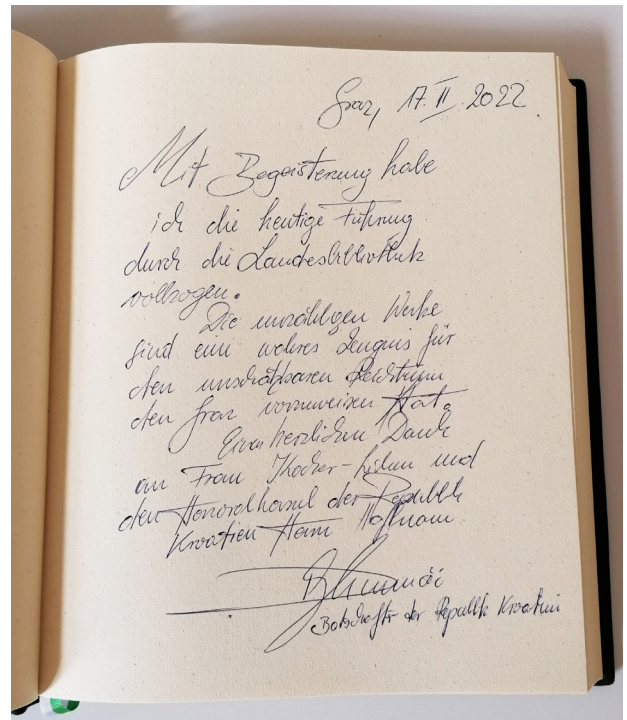 Graz, 17. II. 2022.
Mit Begeisterung habe
ich die heutige Führung
durch die Landesbibliothek
vollzogen.
Die unzähligen Werke
sind ein wahres Zeugnis für
den unschätzbaren Reichtum
den Graz vorzuweisen hat.
Einen herzlichen Dank
an Frau Kocher- und
den Honorarkonsul der Republik
Kroatien Herrn
Botschafter der Republik Kroatien